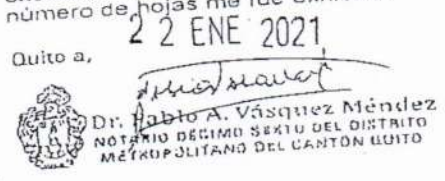 número de hojas me fue
22 ENE 2021
Quito a,
Dr. Pablo A. Vásquez Méndez
NOTARIO DÉCIMO SEXTO DEL DISTRITO
METROPOLITANO DEL CANTÓN QUITO